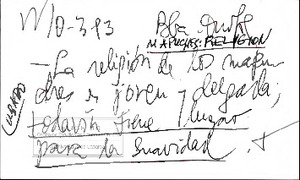 W10-393
MAPUCHES: RELIGION
- La religión de los mapu-
ches es joven y delgada,
todavía tiene lugar
para la suavidad. +